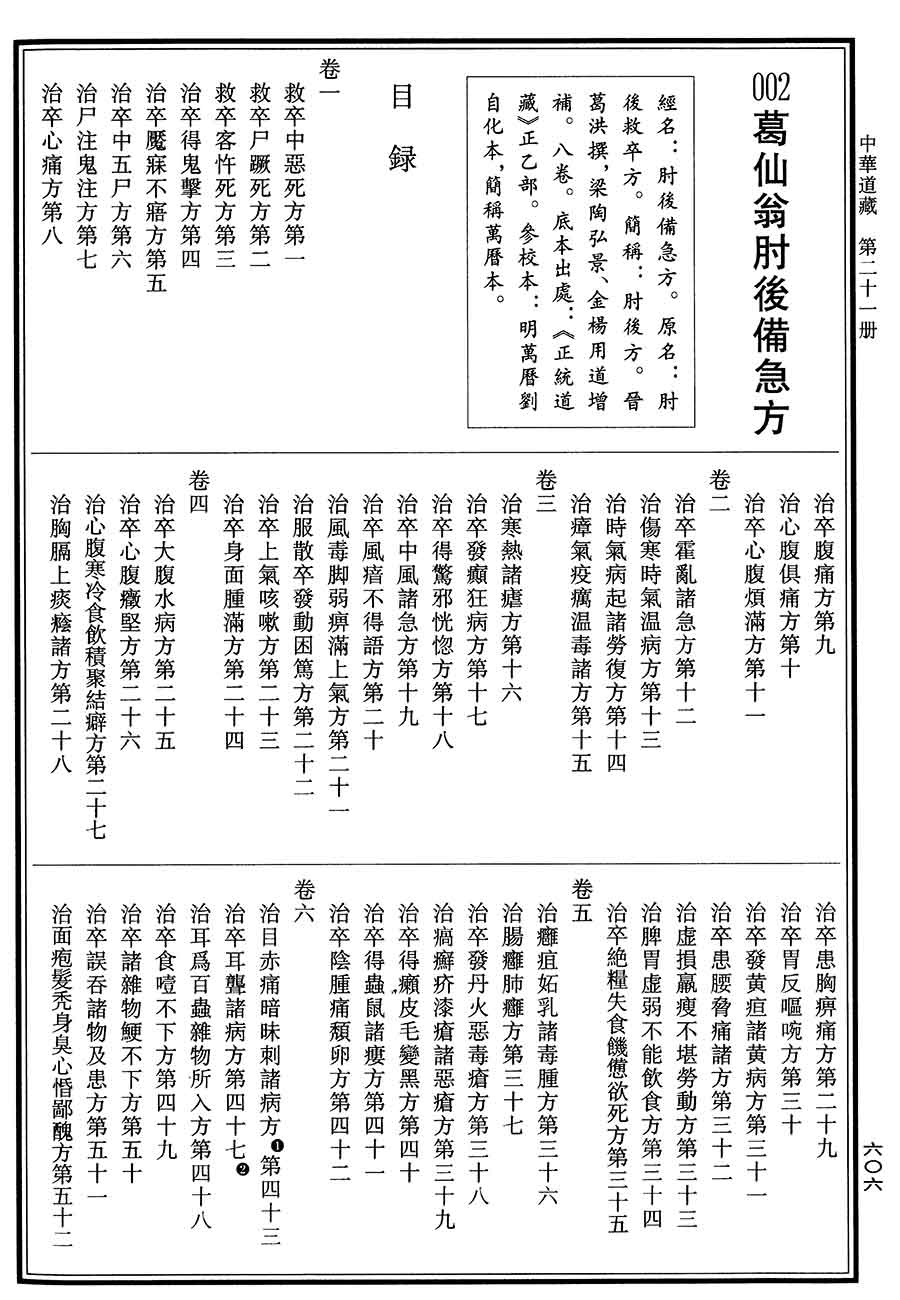 中華道藏　第二十一册
六〇六
002葛仙翁肘後備急方
經名：肘後備急方。原名：肘
後救卒方。簡稱：肘後方。晉
葛洪撰，梁陶弘景、金楊用道增
補。八卷。底本出處：《正統道
藏》正乙部。參校本：明萬曆劉
自化本，簡稱萬曆本。
目録
卷一
救卒中惡死方第一
救卒尸蹶死方第二
救卒客忤死方第三
治卒得鬼擊方第四
治卒魘寐不寤方第五
治卒中五尸方第六
治尸注鬼注方第七
治卒心痛方第八
治卒腹痛方第九
治心腹俱痛方第十
治卒心腹煩滿方第十一
卷二
治卒霍亂諸急方第十二
治傷寒時氣温病方第十三
治時氣病起諸勞復方第十四
治瘴氣疫癘温毒諸方第十五
卷三
治寒熱諸瘧方第十六
治卒發癲狂病方第十七
治卒得驚邪恍惚方第十八
治卒中風諸急方第十九
治卒風瘖不得語方第二十
治風毒脚弱痹滿上氣方第二十一
治服散卒發動困篤方第二十二
治卒上氣咳嗽方第二十三
治卒身面腫滿方第二十四
卷四
治卒大腹水病方第二十五
治卒心腹癥堅方第二十六
治心腹寒冷食飲積聚結癖方第二十七
治胸膈上痰癊諸方第二十八
治卒患胸痹痛方第二十九
治卒胃反嘔啘方第三十
治卒發黄疸諸黄病方第三十一
治卒患腰脅痛諸方第三十二
治虚損羸瘦不堪勞動方第三十三
治脾胃虚弱不能飲食方第三十四
治卒絶糧失食饑憊欲死方第三十五
卷五
治癰疽妬乳諸毒腫方第三十六
治腸癰肺癰方第三十七
治卒發丹火惡毒瘡方第三十八
治瘑癬疥漆瘡諸惡瘡方第三十九
治卒得癩皮毛變黑方第四十
治卒得蟲鼠諸瘻方第四十一
治卒陰腫痛頹卵方第四十二
卷六
治目赤痛暗昧刺諸病方❶第四十三
治卒耳聾諸病方第四十七❷
治耳爲百蟲雜物所入方第四十八
治卒食噎不下方第四十九
治卒諸雜物鯁不下方第五十
治卒誤吞諸物及患方第五十一
治面疱髮禿身臭心惛鄙醜方第五十二